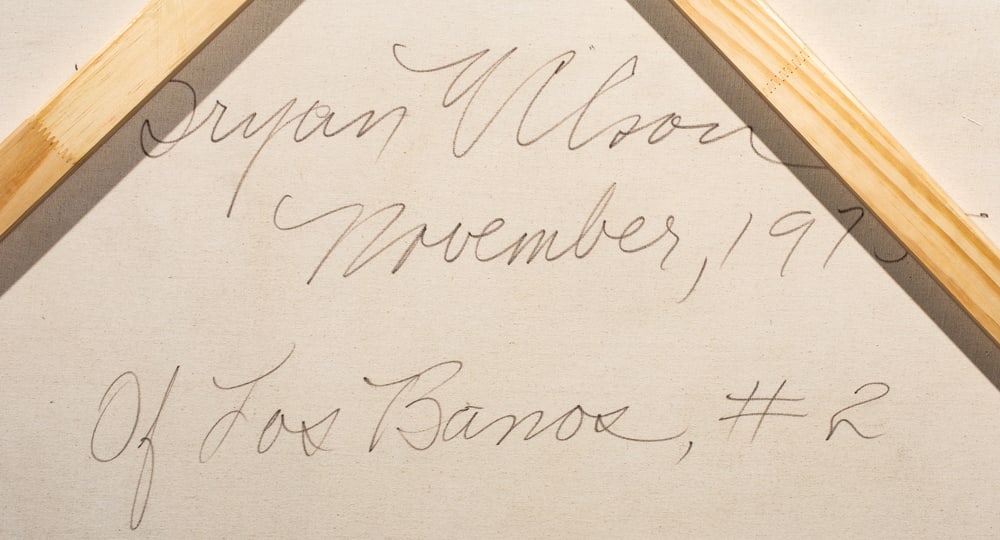 Bryan Wilson
November, 197
Of Los Banos, #2